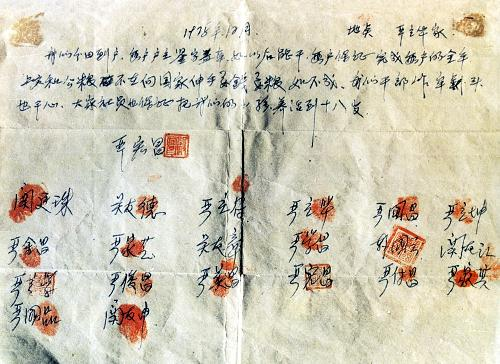 1978年12月 地点 严立华家
我们分田到户,每户户主签字盖章,如以后能干,每户保证完成每户的全年
上交和公粮 不在向国家伸手要钱要粮,如不成,我们干部作牢刹头
也干心,大家社员也保证把我们的小孩养活到十八岁.
严宏昌
关廷珠 关友德 严立符 严立华 严国昌 严立坤
严金昌 严家芝 关友章 严学昌 关友江
严立学 严俊昌 严美昌 严宏昌 严付昌 严家其
严国品 关友申